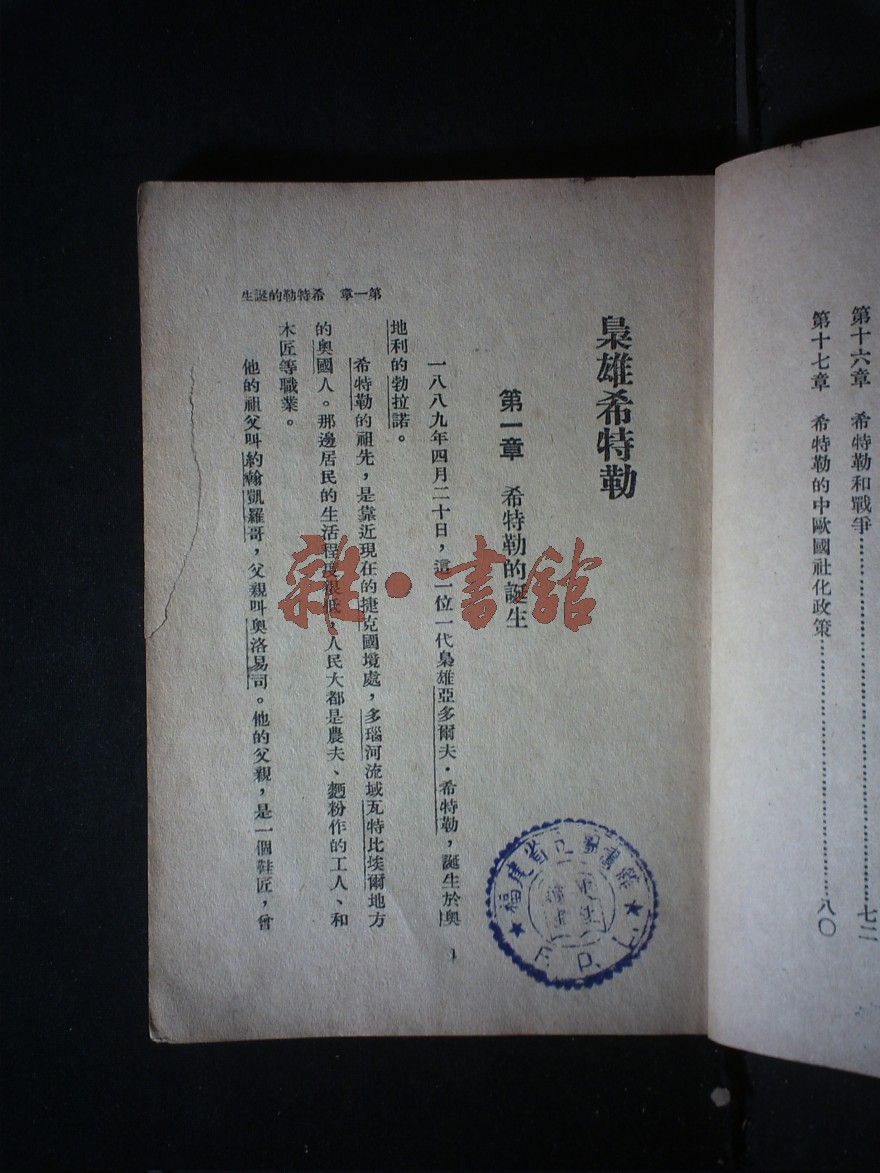 第十六章　希特勒和戰爭……………………七二
第十七章　希特勒的中歐國社化政策……………………八〇
梟雄希特勒
第一章　希特勒的誕生
一八八九年四月二十日，這一位一代梟雄亞多爾夫·希特勒，誕生於奧
地利的勃拉諾。
希特勒的祖先，是靠近現在的捷克國境處，多瑙河流域瓦特比埃爾地方
的奧國人。那邊居民的生活程度很低，人民大都是農夫、麵粉作的工人、和
木匠等職業。
他的祖父叫約翰凱羅哥，父親叫奧洛易司。他的父親，是一個鞋匠，曾
第一章　希特勒的誕生
1
雜·書館
福建省立圖書館
F. P. L.